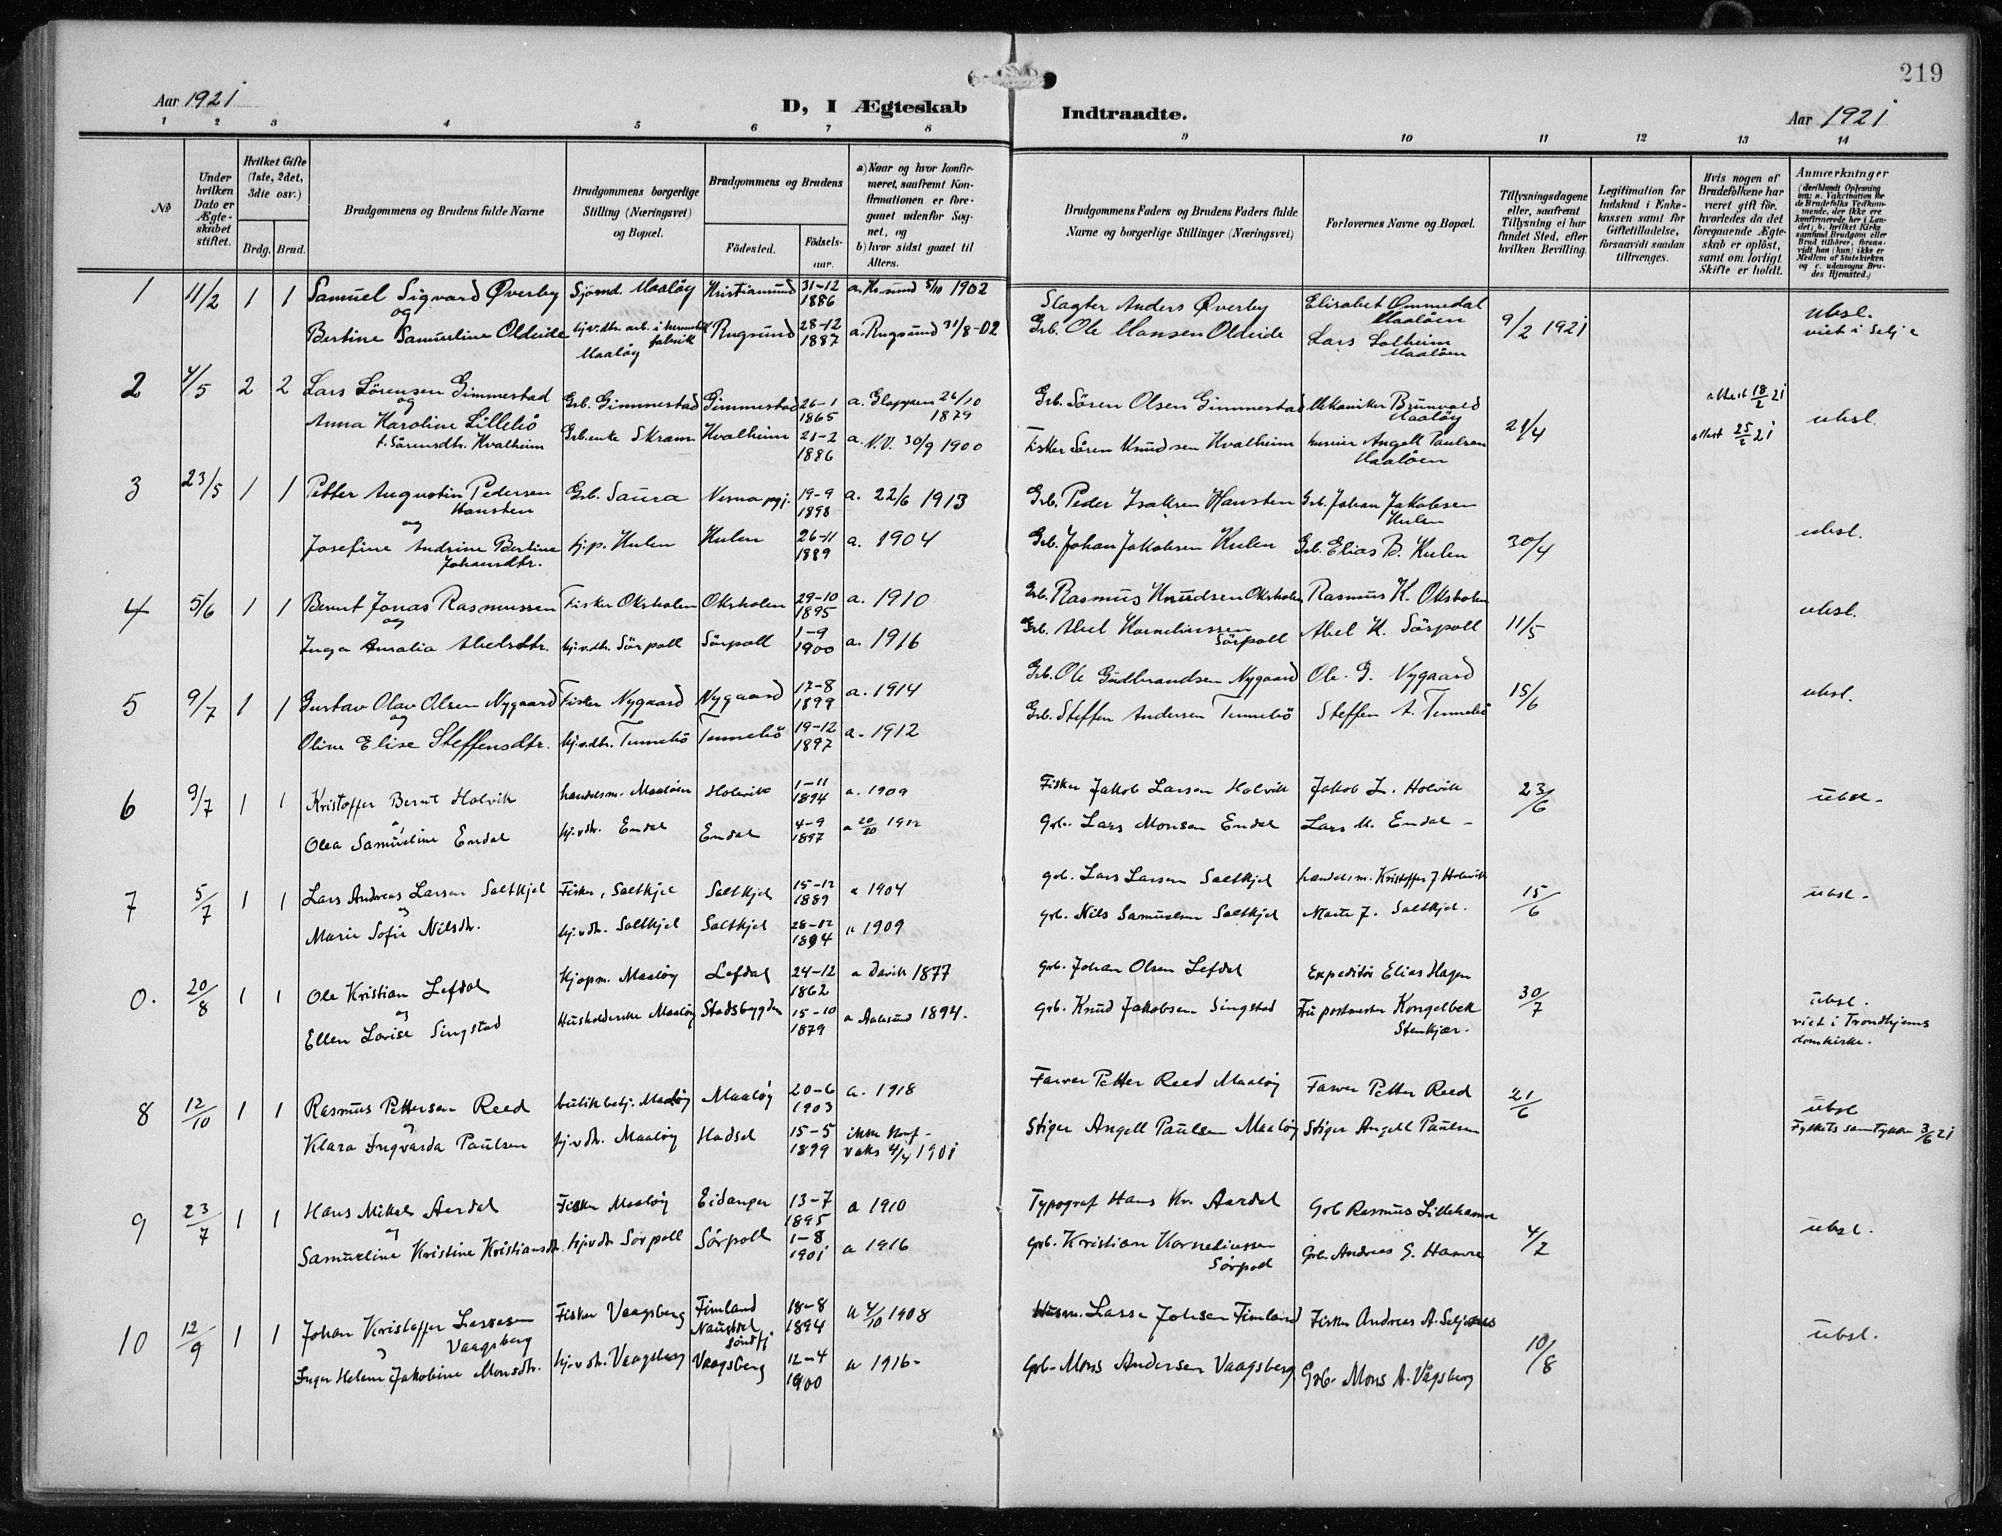 219
Aar 1921
D, I Ægteskab Indtraadte.
Aar 1921
1 2 3 4 5 6 7 8 9 10 11 12 13 14
№
Under hvilken Dato er Ægteskabet stiftet.
Hvilket Gifte (1ste, 2det, 3die osv.)
Brdg. Brud.
Brudgommens og Brudens fulde Navne
Brudgommens borgerlige Stilling (Næringsvei) og Bopæl.
Brudgommens og Brudens
Födested. Födselsaar.
a) Naar og hvor konfirmeret, saafremt Konfirmationen er foregaaet udenfor Sognet, og
b) hvor sidst gaaet til Alters.
Brudgommens Faders og Brudens Faders fulde Navne og borgerlige Stillinger (Næringsvei)
Forlovernes Navne og Bopæl.
Tillysningsdagene eller, saafremt Tillysning ei har fundet Sted, efter hvilken Bevilling.
Legitimation for Indskud i Enkekassen samt for Giftetilladelse, forsaavidt saadan tiltrænges.
Hvis nogen af Brudefolkene har været gift för, hvorledes da det foregaaende Ægteskab er oplöst, samt om lovligt Skifte er holdt.
Anmærkninger
1 11/2 1 1 Samuel Sigvard Överby Sjömd. Maalöy Kristiansund 31-12 1886 a. Kr.sund 5/10 1902 Slagter Anders Överby Elisabet Ommedal Maalöen 9/2 1921 ubsl.
og
Bertine Samueline Oldeide tj.v.dtr. arb. i hermetikfabrik Maalöy Rugsund 28-12 1887 a. Rugsund 31/8-02 Grb. Ole Hansen Oldeide Lars Solheim Maalöen viet i Selje
2 4/5 2 2 Lars Sörensen Gimmestad Grb. Gimmestad Gimmestad 26-1 1865 a. Gloppen 26/10 1879 Grb. Sören Olsen Gimmestad Mekaniker Brunvold Maalöy 21/4 attest 18/2 21 ubsl.
og
Anna Karoline Lillebö f. Sörensdtr. Kvalheim Grb.enke Skram Kvalheim 21-2 1886 a. N.V. 30/9 1900 Fisker Sören Knudsen Kvalheim huseier Angell Paulsen Maalöen attest 25/2 21
3 23/5 1 1 Petter Augustin Pedersen Hansten Grb. Saura 19-9 1898 a. 22/6 1913 Grb. Peder Isaksen Hansten Grb. Johan Jakobsen Kulen 30/4 ubsl.
og
Josefine Andrine Bertine Johansdtr. tj.p. Kulen Kulen 26-11 1889 a. 1904 Grb. Johan Jakobsen Kulen Grb. Elias B. Kulen
4 5/6 1 1 Bernt Jonas Rasmussen Fisker Oksholen Oksholen 29-10 1895 a. 1910 Grb. Rasmus Knudsen Oksholen Rasmus K. Oksholen 11/5 ubsl.
og
Inga Amalia Abelsdtr. tj.v.dtr. Sörpoll Sörpoll 1-9 1900 a. 1916 Grb. Abel Korneliussen Sörpoll Abel K. Sörpoll
5 9/7 1 1 Gustav Olav Olsen Nygaard Fisker Nygaard Nygaard 17-8 1899 a. 1914 Grb. Ole Gudbrandsen Nygaard Ole G. Nygaard 15/6 ubsl.
og
Oline Elise Steffensdtr. tj.v.dtr. Tennebö Tennebö 19-12 1897 a. 1912 Grb. Steffen Andersen Tennebö Steffen A. Tennebö
6 9/7 1 1 Kristoffer Bernt Holvik handelsm. Maalöen Holevik 1-11 1894 a. 1909 Fisker Jakob Larsen Holvik Jakob L. Holvik 23/6 ubsl.
Olea Samueline Endal tj.v.dtr. Endal Endal 4-9 1897 a 20/10 1912 Grb. Lars Monsen Endal Lars M. Endal
7 5/7 1 1 Lars Andreas Larsen Saltkjel Fisker, Saltkjel Saltkjel 15-12 1889 a 1904 grb. Lars Larsen Saltkjel handelsm. Kristoffer J Holevik 15/6 ubsl.
Marie Sofie Nilsdtr. tj.v.dtr. Saltkjel Saltkjel 28-12 1894 a 1909 grb. Nils Samuelsen Saltkjel J. Saltkjel.
0. 20/8 1 1 Ole Kristian Lefdal Kjöpm. Maalöy Lefdal 24-12 1862 a Davik 1877 Grb. Johan Olsen Lefdal Expeditör Elias Hagen 30/7 ubsl.
og
Ellen Lovise Singstad Husholderske Maalöy Stadsbygden 15-10 1879 a Aalesund 1894. Grb. Knud Jakobsen Singstad Fru postmester Kongelbek Stenkjær. viet i Trondhjems domkirke.
8 12/10 1 1 Rasmus Pettersen Reed butikbetj. Maalöy Maalöy 20-6 1903 a. 1918 Farver Petter Reed Maalöy Farver Petter Reed 21/6 ubsl
Klara Ingvarda Paulsen tj.v.dtr. Maalöy Hadsel 15-5 1899 ikke konf. vaks 4/4 1901 Stiger Angell Paulsen Maalöy Stiger Angell Paulsen Fylkets samtykke 3/6 21
9 23/7 1 1 Hans Mikal Aardal Fisker Maalöy Eidanger 13-7 1895 a 1910 Typograf Hans Kr. Aardal Grb Rasmus Lillehamre 4/7 ubsl.
Samueline Kristine Kristiansdtr. tj.v.dtr Sörpoll Sörpoll 1-8 1901 a 1916 Grb. Kristian Korneliussen Sörpoll Grb. Andreas G. Hamre
10 12/9 1 1 Johan Kristoffer Larssen Vaagsberg Fisker Vaagsberg Fimland Naustdal Söndfj 18-8 1894 a 4/10 1908 Husm. Lasse Johsen Fimland Fisker Andreas A. 10/8 ubsl.
Inger Helene Jakobine Monsdtr. tj.v.dtr. Vaagsberg Vaagsberg 12-4 1900 a 1916 - Grb. Mons Andersen Vaagsberg Grb. Mons A. Vågsberg